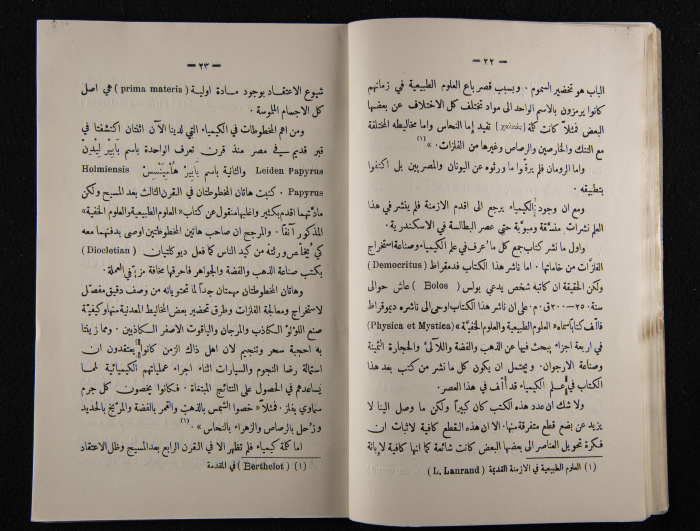 — ٢٢ —
الباب هو تحضير السموم . وبسبب قصر باع العلوم الطبيعية في زمانهم
كانوا يرمزون بالاسم الواحد الى مواد تختلف كل الاختلاف عن بعضها
البعض فمثلاً كانت كلمة [χαλκός] تفيد إما النحاس واما مخاليطه المختلفة
مع التنك والخارصين والرصاص وغيرها من الفلزات . » (١)
واما الرومان فلم يرقّوا ما ورثوه عن اليونان والمصريين بل اكتفوا
بتطبيقه .
ومع ان وجود الكيمياء يرجع الى اقدم الازمنة فلم ينشر في هذا
العلم نشرات منسّقة ومبوّبة حتى عصر البطالسة في الاسكندرية .
واول ما نشر كتاب جمع كل ما عُرف في علم الكيمياء وصناعة استخراج
الفلزّات من خاماتها . اما ناشر هذا الكتاب فدمقراط (Democritus)
ولكن الحقيقة ان كاتبه شخص يدعى بولس (Bolos) عاش حوالى
سنة ٢٥٠–٢٠٠ ق . م . على ان ناشر هذا الكتاب اوحى الى ناشره ديموقراط
فألف كتابًا سماه « العلوم الطبيعية والعلوم الخفيّة » (Physica et Mystica)
في اربعة اجزاء يبحث فيها عن الذهب والفضة واللآلئ والحجارة الثمينة
وصناعة الارجوان . ويحتمل ان يكون كل ما نشر من كتب بعد هذا
الكتاب في علم الكيمياء قد أُلف في هذا العصر .
ولا شك ان عدد هذه الكتب كان كبيراً ولكن ما وصل الينا لا
يزيد عن بضع قطع متفرقة منها . الا ان هذه القطع كافية لاثبات ان
فكرة تحويل العناصر الى بعضها البعض كانت شائعة كما انها كافية لابانة
(١) العلوم الطبيعية في الازمنة القديمة (L. Lanrand)
— ٢٣ —
شيوع الاعتقاد بوجود مادة اولية (prima materia) هي اصل
كل الاجسام الملموسة .
ومن اهم المخطوطات في الكيمياء التي لدينا الآن اثنتان اكتشفتا في
قبر قديم في مصر منذ قرن تعرف الواحدة باسم بَابَيْر لِيْدِنْ
Leiden Papyrus والثانية باسم بَابَيْر هُلْمِيَنْسِيْس Holmiensis
Papyrus . كتبت هاتان المخطوطتان في القرن الثالث بعد المسيح ولكن
مادّتهما اقدم بكثير واغلبها منقول عن كتاب « العلوم الطبيعية والعلوم الخفية »
المذكور آنفاً . والمرجح ان صاحب هاتين المخطوطتين اوصى بدفنهما معه
كي يُخلّص ورثته من كيد الناس كما فعل ديوكلتيان (Diocletian)
بكتب صناعة الذهب والفضة والجواهر فاحرقها مخافة مزج في العملة .
وهاتان المخطوطتان مهمتان جداً لما تحتويانه من وصف دقيق مفصّل
لاستخراج ومعالجة الفلزات وطرق تحضير بعض المخاليط المعدنية منها وكيفيّة
صنع اللؤلؤ الكاذب والمرجان والياقوت الاصفر الكاذبين . ومما زينتا
به احجبة سحر وتنجيم لان اهل ذاك الزمن كانوا يعتقدون ان
استمالة رضا النجوم والسيارات اثناء اجراء عملياتهم الكيميائية لمما
يساعدهم في الحصول على النتائج المبتغاة . فكانوا يخصون كل جرم
سماوي بفلز ، فمثلاً « خصوا الشمس بالذهب والقمر بالفضة والمرّيخ بالحديد
وزحل بالرصاص والزهراء بالنحاس » . (١)
اما كلمة كيمياء فلم تظهر الا في القرن الرابع بعد المسيح وظل الاعتقاد
(١) (Berthelot) في المقدمة